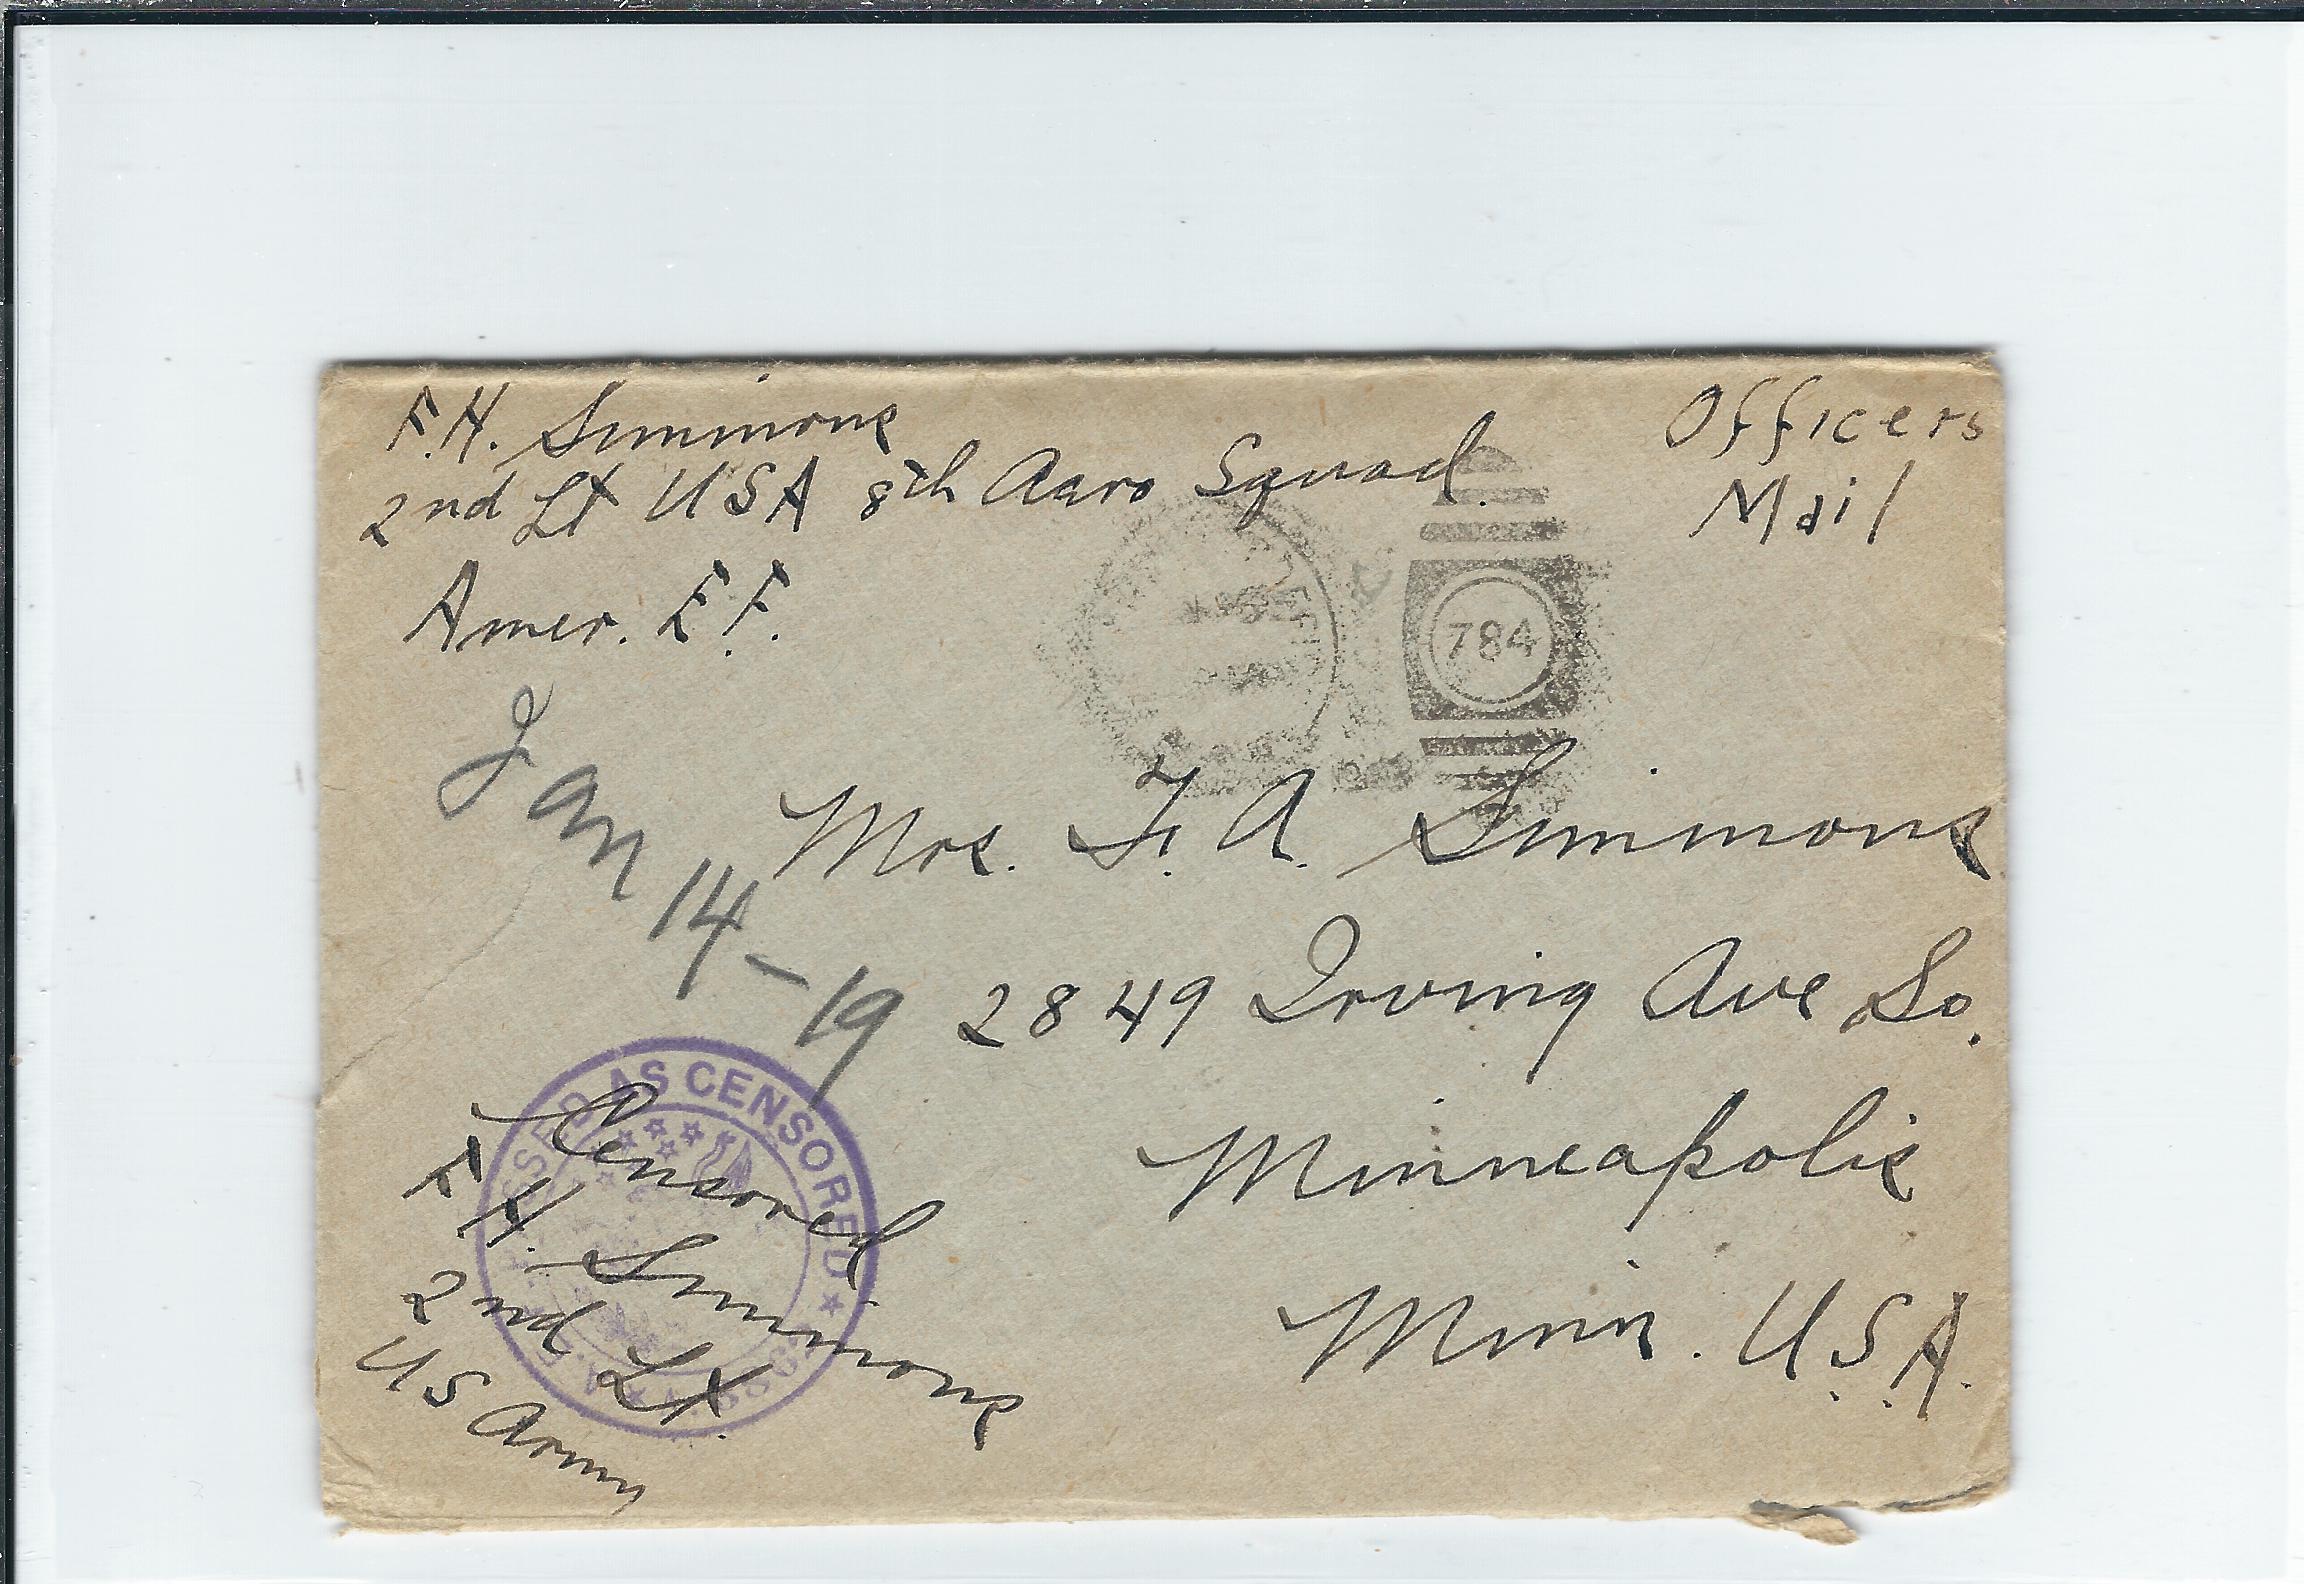 F.H. Simmons
2nd Lt USA 8th Aaro Squad.
Amer. E.F.
Officers
Mail
784
Jan 14-19
Mrs. F. A. Simmons
2849 Irving Ave So.
Minneapolis
Minn. U.S.A.
PASSED AS CENSORED
A.E.F.
Censored
F.H. Simmons
2nd Lt.
US Army